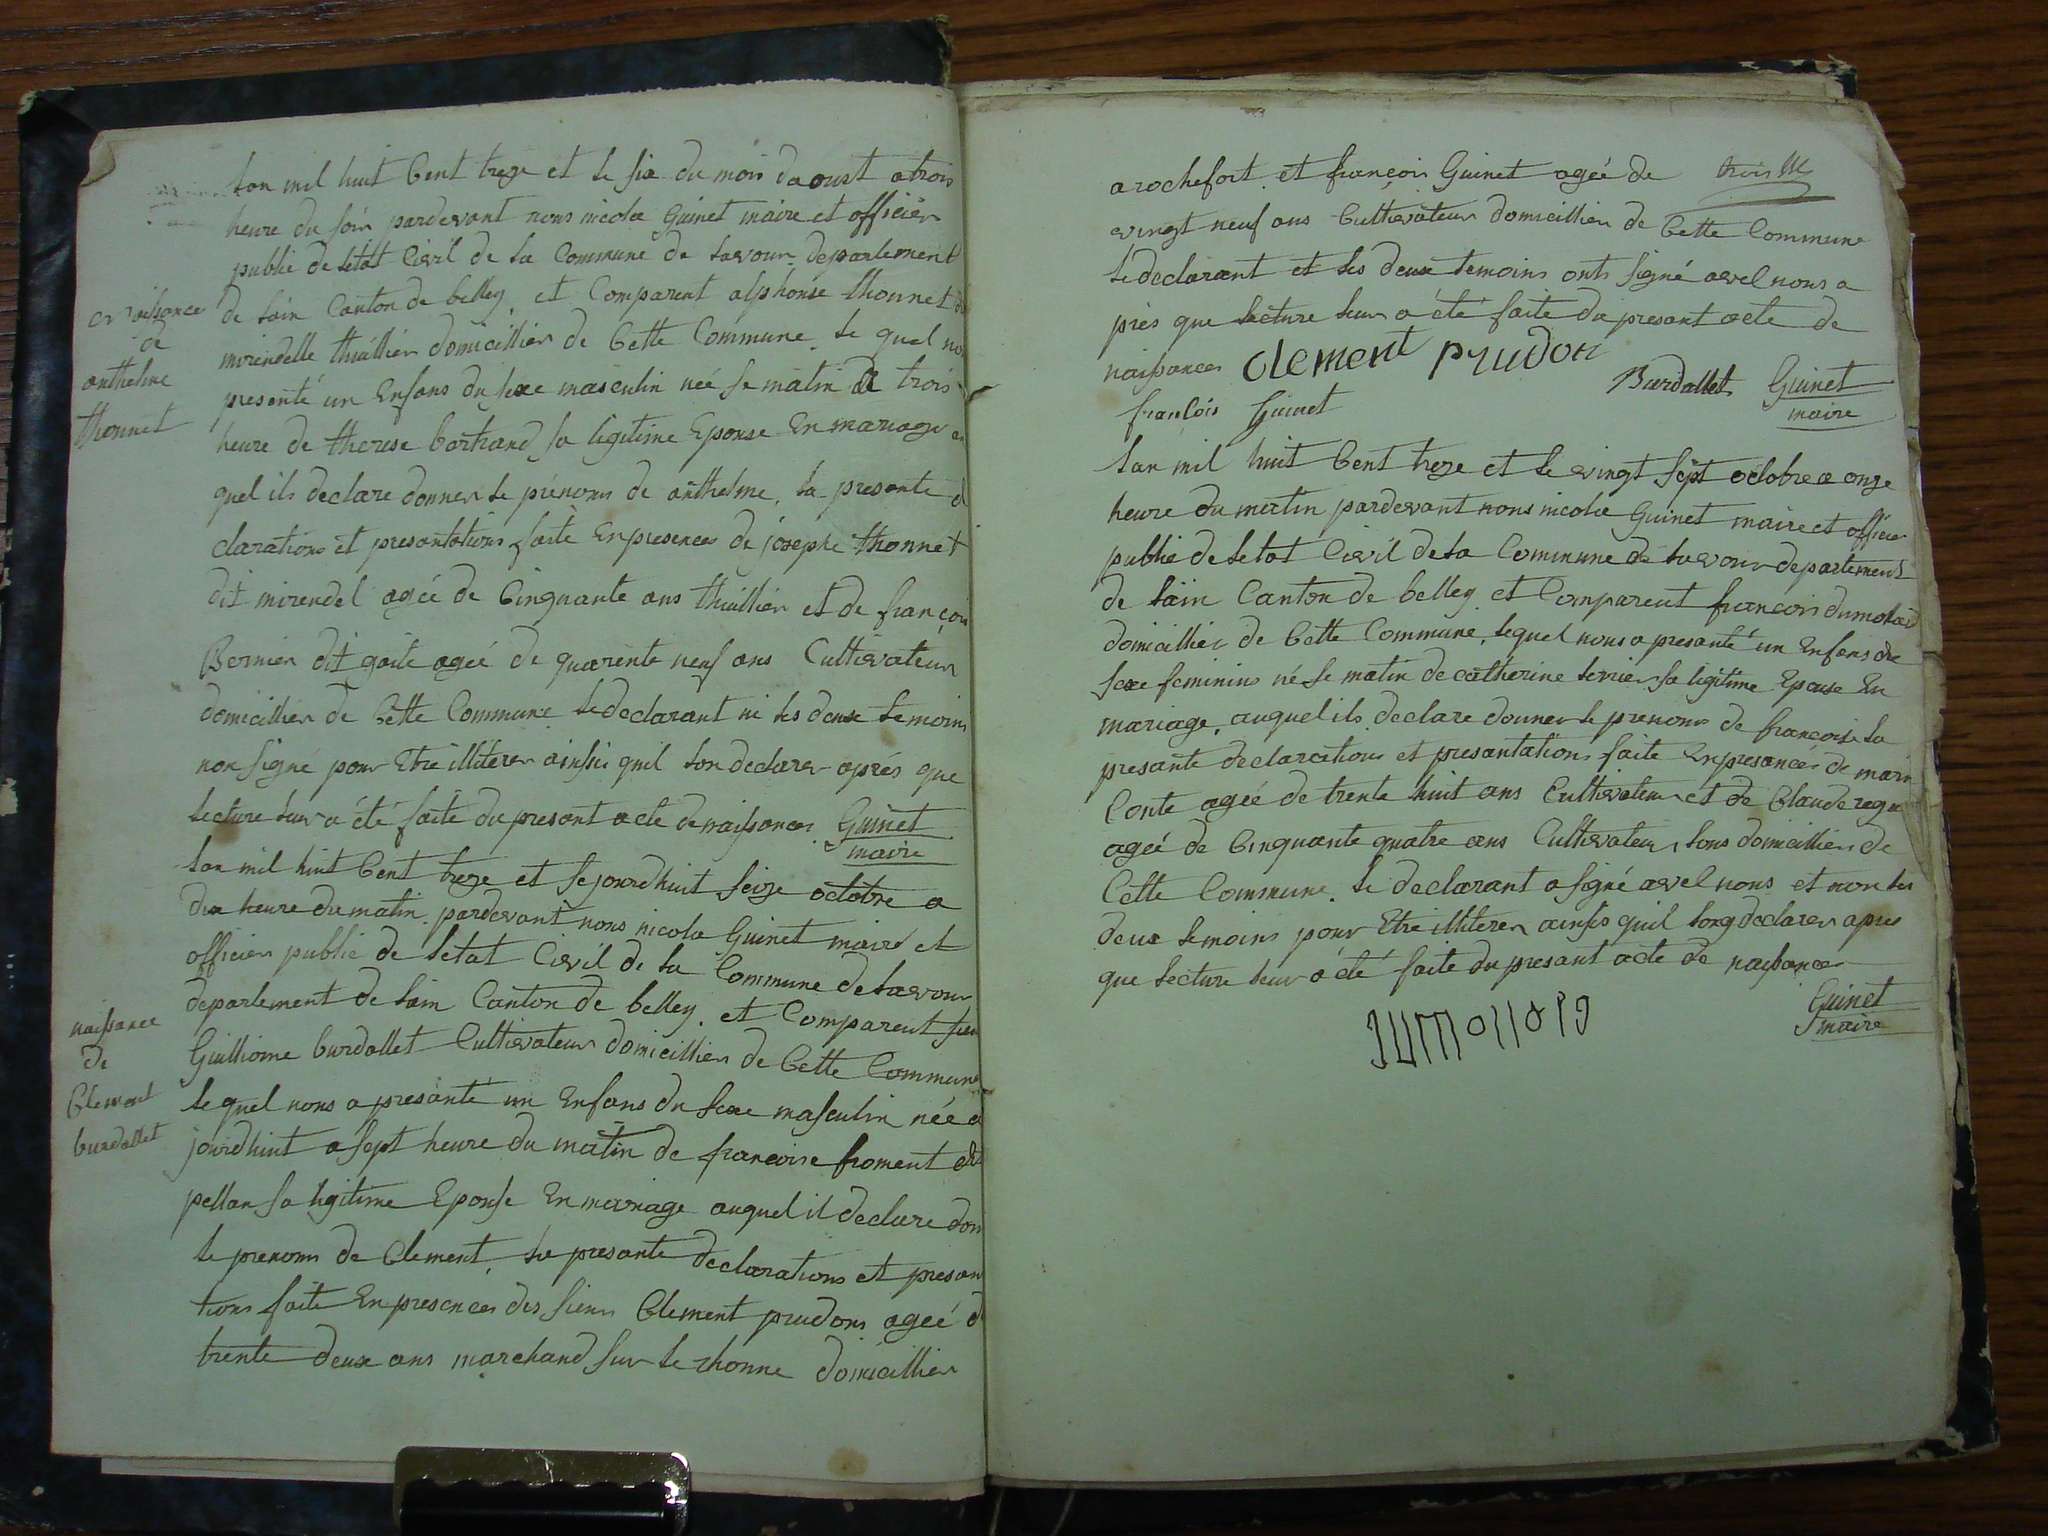 lan mil huit Cent treze et le six du mois daoust a trois
heure du soir pardevant nous nicola Guinet maire et officier
public de letat Civil de la Commune de lavour departement
de lain Canton de belley et Comparent alphonse thonnet
mirendelle thuillier domicillier de Cette Commune. le quel
presenté un Enfans du sexe masculin née le matin a trois
heure de therese bertrand sa ligitime Epouse En mariage
quel ils declare donner le prenoms de anthelme, la presente
clarations et presantations faite Enpresences de josephe thonnet
dit mirendel agée de Cinquante ans thuillier et de françois
Bernier dit gaite agée de quarente neuf ans Cultivateur
domicillier de Cette Commune le declarant ni les deux temoins
non signé pour Etre illiterer ainsis quil lon declarer aprés que
lecture leur a été faite du presant acte de naissances Guinet
maire
naissance
de
anthelme
thonnet
lan mil huit Cent treze et lejourdhuit seize octobre a
dix heure du matin pardevant nous nicola Guinet maire et
officier public de letat Civil de la Commune de lavour
departement de lain Canton de belley. et Comparent sieur
Guilliome burdallet Cultivateur domicillier de Cette Commune
le quel nous a presanté un Enfans du sexe masculin née a
jourdhuit a sept heure du matin de francoise froment
pellan sa ligitime Epouse En mariage auquel il declare don
le prenoms de Clement, la presante declarations et presan
tions faite Enpresences des sieur Clement prudons agée d
trente deux ans marchand sur le rhonne domicillier
naissance
de
Clement
burdallet
a rochefort et françois Guinet agée de
vingt neuf ans Cultivateur domicillier de Cette Commune
le declarant et les deux temoins onts signé avel nous a
près que lecture leur a été faite du presant acte de
naissances Clement prudon
Burdallet Guinet
maire
françois Guinet
lan mil huit Cent treze et le vingt sept octobre a onze
heure du matin pardevant nous nicola Guinet maire et officier
public de letat Civil de la Commune de lavour departement
de lain Canton de belley et Comparent francois dumolard
domicillier de Cette Commune, lequel nous a presanté un Enfans de
sexe feminins né le matin de catherine sa ligitime Epouse En
mariage, auquel ils declare donner le prenoms de francoise la
presante declarations et presantations faite Enpresances de
Conte agée de trente huit ans Cultivateur et de Claude
agée de Cinquante quatre ans Cultivateur tous domicillier de
Cette Commune. le declarant a signé avel nous et non les
deux temoins pour Etre illiterer ainsis quil declarer apres
que lecture leur a été faite du presant acte de naissances
Guinet
maire
dumollard